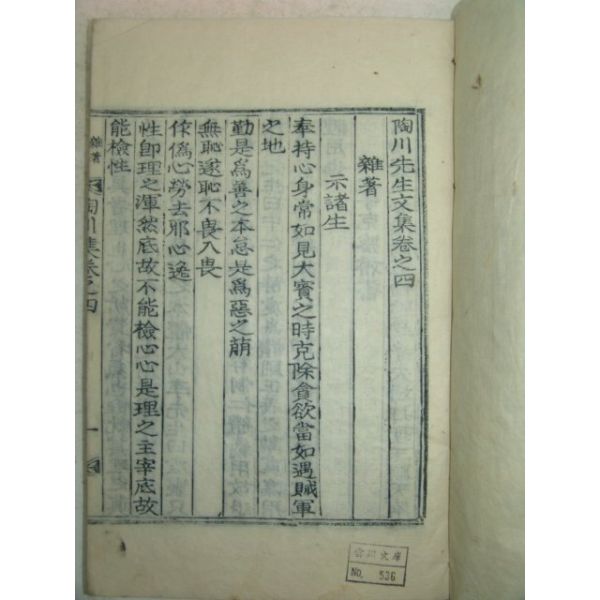 陶川先生文集卷之四
雜著
示諸生
奉持心身常如見大賓之時克除貪欲當如遇賊軍
之地
勤是爲善之本怠是爲惡之萠
無恥遂恥不畏入畏
作僞心勞去邪心逸
性卽理之渾然底故不能檢心心是理之主宰底故
能檢性
雜著
陶川集卷之四
一
文庫
No. 536